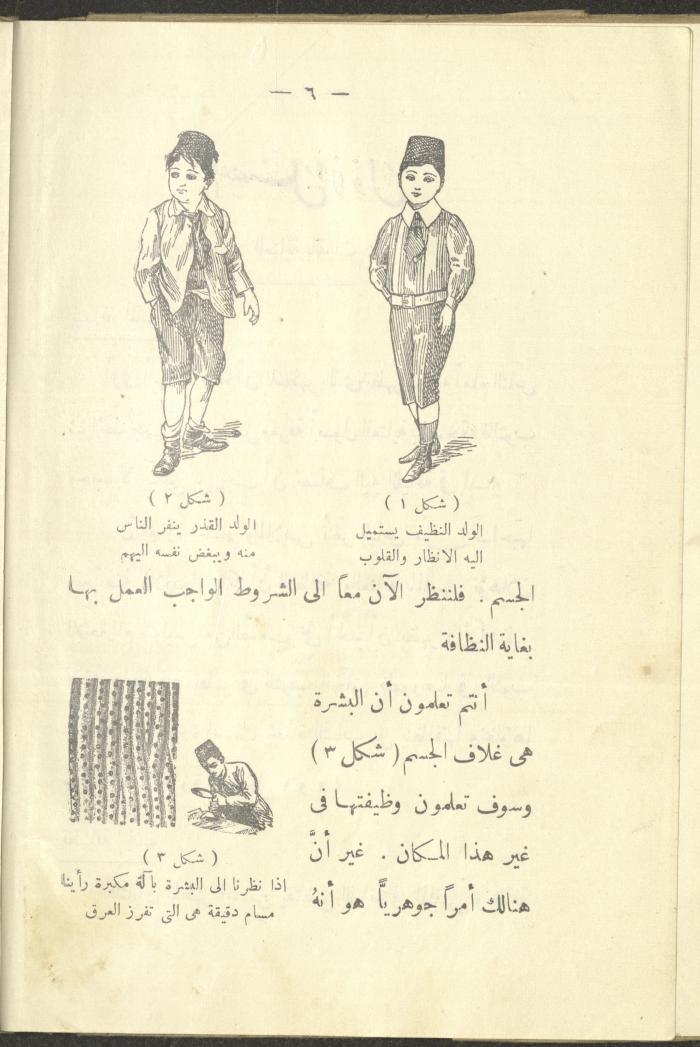 — ٦ —
( شكل ١ )
الولد النظيف يستميل
اليه الانظار والقلوب
( شكل ٢ )
الولد القذر ينفر الناس
منه ويبغض نفسه اليهم
الجسم . فلننظر الآن معاً الى الشروط الواجب العمل بها
بغاية النظافة
أنتم تعلمون أن البشرة
هى غلاف الجسم ( شكل ٣ )
وسوف تعلمون وظيفتها فى
غير هذا المكان . غير أنَّ
هنالك أمراً جوهريًّا هو أنهُ
( شكل ٣ )
اذا نظرنا الى البشرة بآلة مكبرة رأينا
مسام دقيقة هى التى تفرز العرق